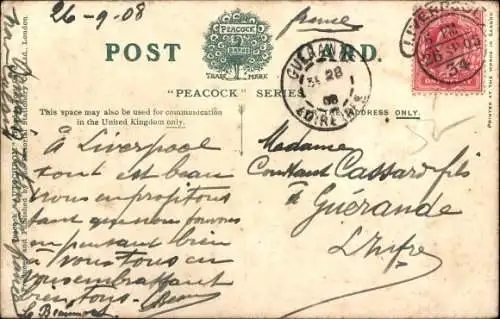 26-9-08
france
PEACOCK
BRAND
TRADE MARK
POST CARD.
"PEACOCK" SERIES
This space may also be used for communication
in the United Kingdom only.
THE ADDRESS ONLY.
LIVERPOOL
26 SP 08
34
GUÉRANDE
28
08
LOIRE INFRE
à Liverpool
tout est beau
nous en profitons
tant que nous pouvons
en pensant bien
à vous tous en
vous embrassant
bien tous.
Le Beaumont
Madame
Constant Cassard fils
à Guérande
L. Infre